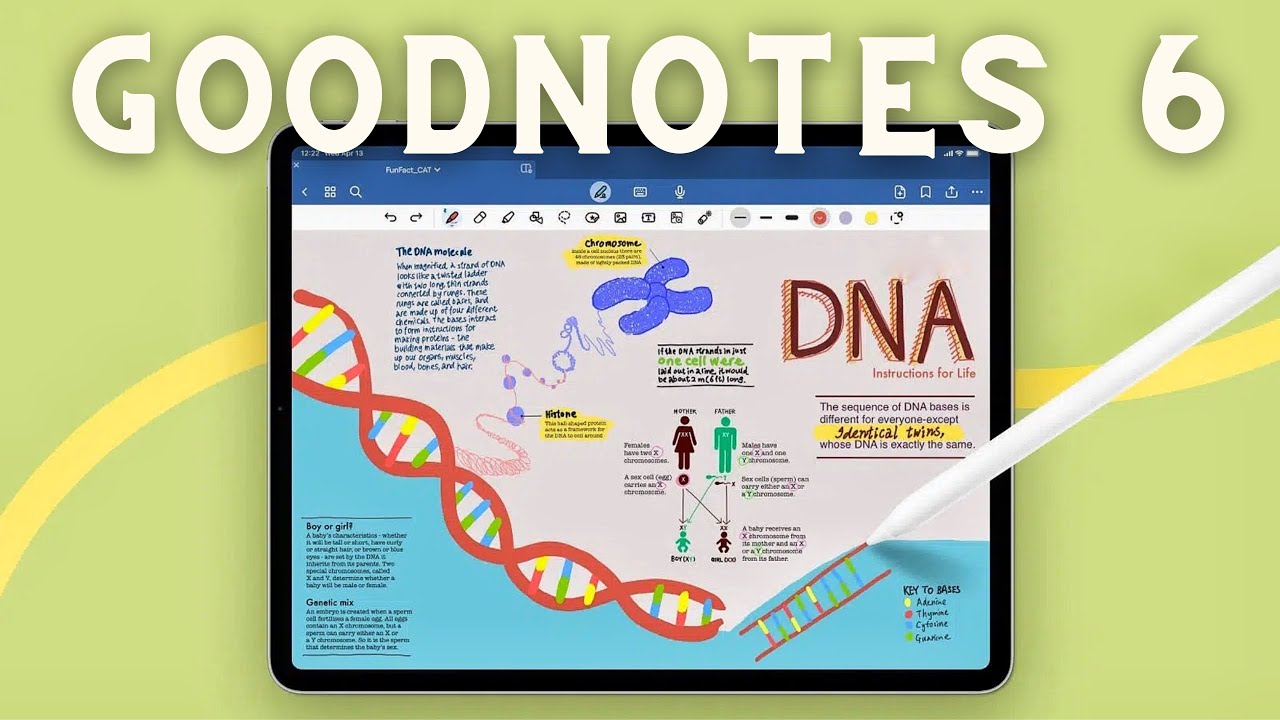 GOODNOTES 6
12:22 Wed Apr 13
FunFect_CAT
The DNA molecule
When magnified, a strand of DNA
looks like a twisted ladder
with two long, thin strands
connected by rungs. These
rungs are called bases, and
are made up of four different
chemicals. The bases interact
to form instructions for
making proteins - the
building materials that make
up our organs, muscles,
blood, bones, and hair.
Chromosome
Inside a cell nucleus there are
46 chromosomes (23 pairs),
made of tightly packed DNA
Histone
This ball-shaped protein
acts as a framework for
the DNA to coil around
If the DNA strands in just
one cell were
laid out in a line, it would
be about 2 m (6 ft) long.
DNA
Instructions for Life
The sequence of DNA bases is
different for everyone-except
identical twins,
whose DNA is exactly the same.
MOTHER
FATHER
XX
XY
Females
have two X
chromosomes.
Males have
one X and one
Y chromosome.
A sex cell (egg)
carries an X
chromosome.
X
Y
X
Sex cells (sperm) can
carry either an X or
a Y chromosome.
XY
XX
BOY (XY)
GIRL (XX)
A baby receives an
X chromosome from
its mother and an X
or a Y chromosome
from its father.
Boy or girl?
A baby's characteristics - whether
it will be tall or short, have curly
or straight hair, or brown or blue
eyes - are set by the DNA it
inherits from its parents. Two
special chromosomes, called
X and Y, determine whether a
baby will be male or female.
Genetic mix
An embryo is created when a sperm
cell fertilizes a female egg. All eggs
contain an X chromosome, but a
sperm can carry either an X or
a Y chromosome. So it is the sperm
that determines the baby's sex.
KEY TO BASES
Adenine
Thymine
Cytosine
Guanine